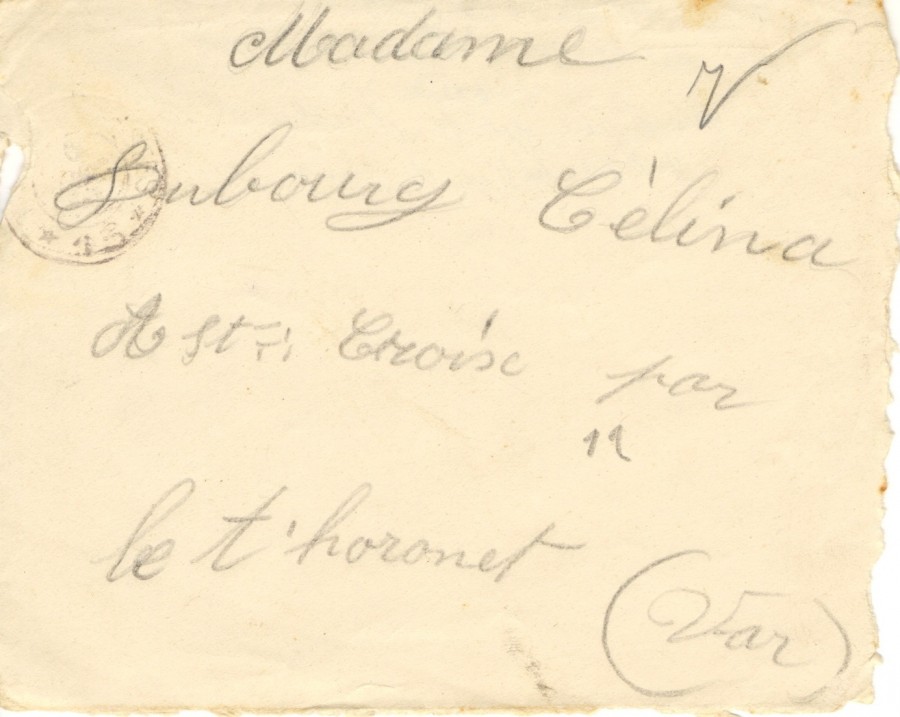 Madame
Soubourg Célina
A Ste Croix par
11
le t'horonet
(Var)
* 15 *